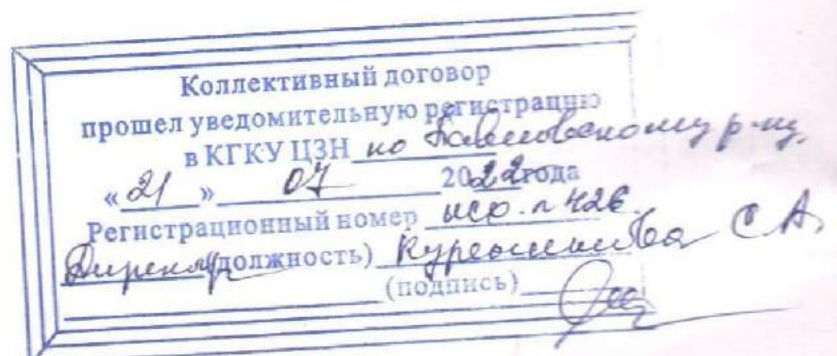 Коллективный договор
прошел уведомительную регистрацию
в КГКУ ЦЗН по Павловскому р-ну,
«21» 07 2022года
Регистрационный номер исх. п 426.
Директор (должность) С А,
(подпись)